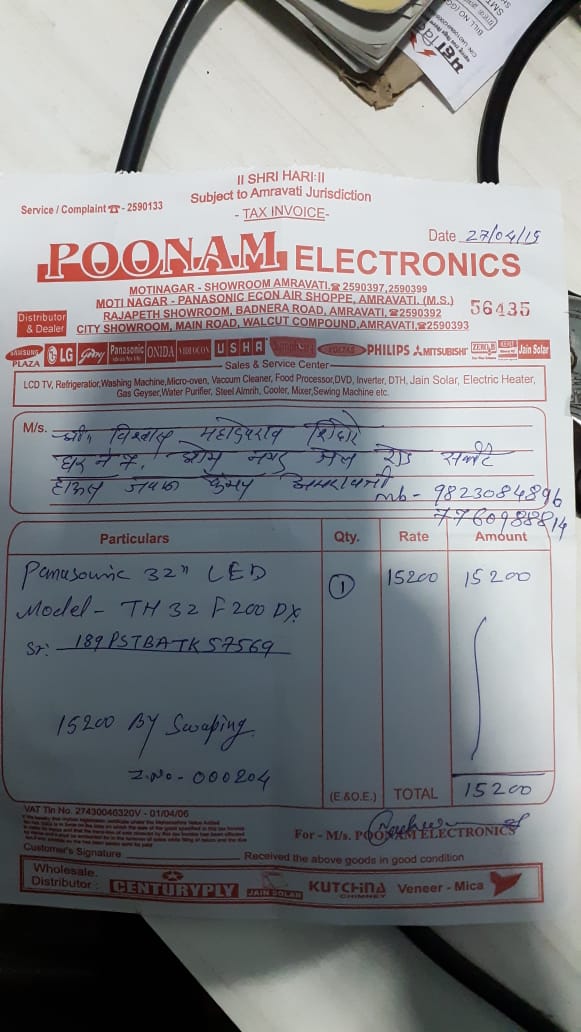 || SHRI HARI:||
Subject to Amravati Jurisdiction
Service / Complaint ☎ - 2590133
- TAX INVOICE-
Date 27/04/19
POONAM ELECTRONICS
MOTINAGAR - SHOWROOM AMRAVATI,☎ 2590397,2590399
MOTI NAGAR - PANASONIC ECON AIR SHOPPE, AMRAVATI. (M.S.)
56435
Distributor & Dealer
RAJAPETH SHOWROOM, BADNERA ROAD, AMRAVATI, ☎2590392
CITY SHOWROOM, MAIN ROAD, WALCUT COMPOUND,AMRAVATI,☎2590393
SAMSUNG PLAZA LG Godrej Panasonic ONIDA VIDEOCON USHA PHILIPS MITSUBISHI ZERO-B Jain Solar
Sales & Service Center
LCD TV, Refrigeratior,Washing Machine,Micro-oven, Vacuum Cleaner, Food Processor,DVD, Inverter, DTH, Jain Solar, Electric Heater,
Gas Geyser,Water Purifier, Steel Almrih, Cooler, Mixer,Sewing Machine etc.
M/s. श्री विश्वास महादेवराव
घर नं 7. जेल रोड
अमरावती mb - 9823084896
7760988814
Particulars Qty. Rate Amount
Panasonic 32" LED 1 15200 15200
Model - TH 32 F 200 DX
Sr: 189PSTBATKS7569
15200 By Swaping
Z.No - 000204
(E.&O.E.) TOTAL 15200
VAT Tin No. 27430046320V - 01/04/06
For - M/s. POONAM ELECTRONICS
Customer's Signature Received the above goods in good condition
Wholesale Distributor : CENTURYPLY JAIN SOLAR KUTCHINA CHIMNEY Veneer - Mica